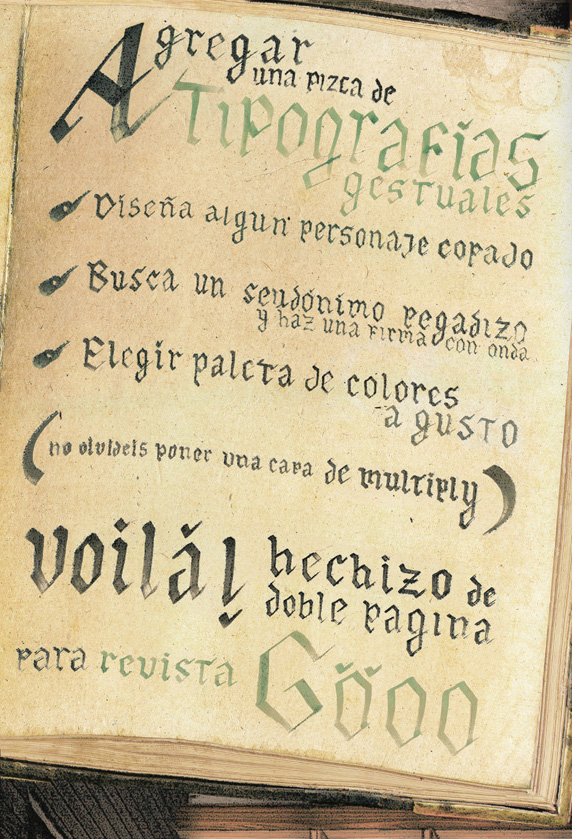 Agregar
una pizca de
Tipografías
gestuales
Diseña algun personaje copado
Busca un seudónimo pegadizo
y haz una firma con onda
Elegir paleta de colores
a gusto
(no olvideis poner una capa de multiply)
voilá! hechizo de
doble pagina
para revista Gööo